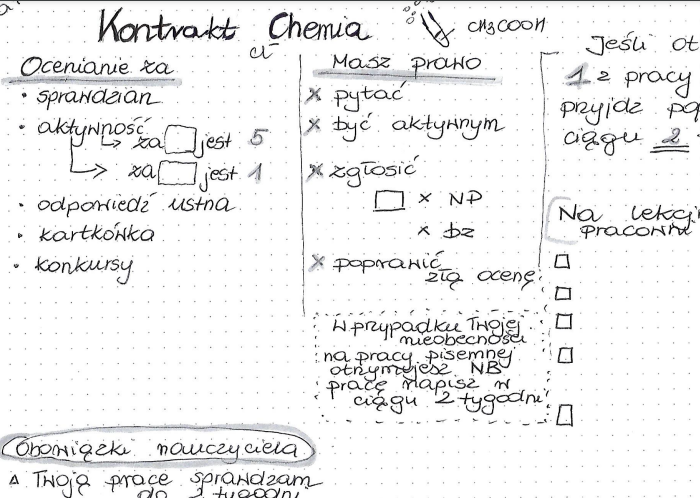 Kontrakt Chemia
CH3COOH
cl
Ocenianie za
• sprawdzian
• aktywność
za jest 5
za jest 1
• odpowiedź ustna
• kartkówka
• konkursy
Masz prawo
× pytać
× być aktywnym
× zgłosić
× NP
× bz
× poprawić
złą ocenę
W przypadku Twojej
nieobecności
na pracy pisemnej
otrzymujesz NB
pracę napisz w
ciągu 2 tygodni
Jeśli ot
1 z pracy
przyjdź pop
ciągu 2
Na lekcji
pracowni
Obowiązki nauczyciela
Δ Twoją pracę sprawdzam
do 2 tygodni